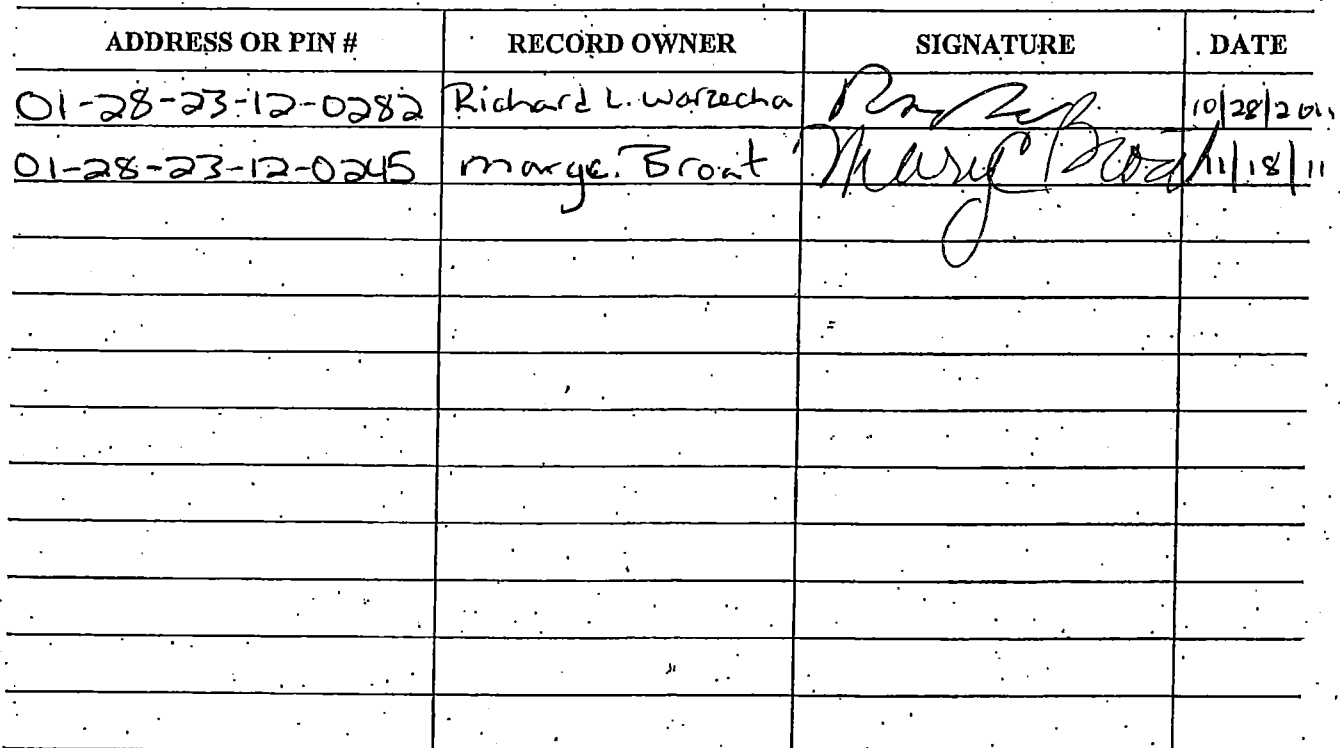 ADDRESS OR PIN # RECORD OWNER SIGNATURE DATE
01-28-23-12-0282 Richard L. Warzecha 10/28/2011
01-28-23-12-0245 Marge. Broat 11/18/11